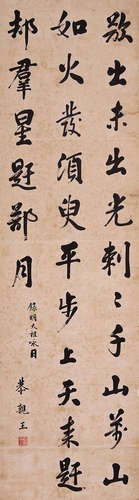 欲出未出光刺〻千山萬山
如火發須臾平步上天来趕
却羣星趕却月
錄明太祖詠日
恭親王